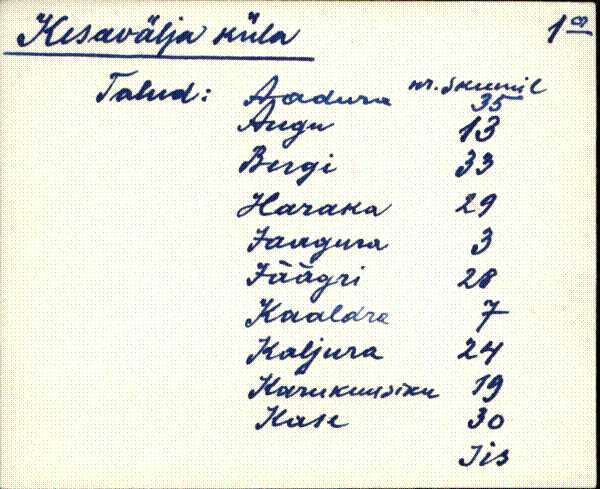 Kesavälja küla 1a
Talud: nr. skeemil
Aadura 35
Augu 13
Bergi 33
Haraka 29
Jaagura 3
Jäägri 28
Kaaldra 7
Kaljura 24
Karukuusiku 19
Kase 30